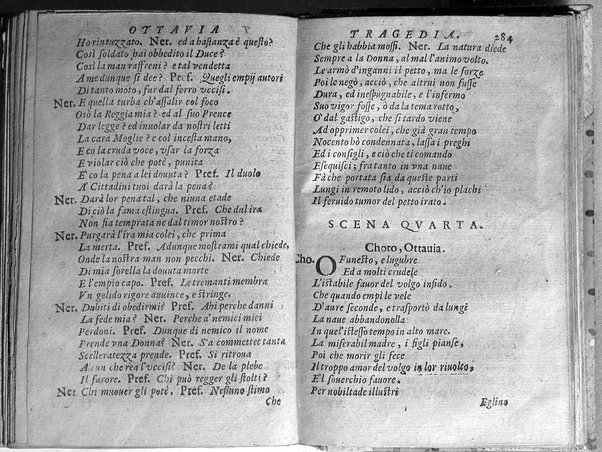 OTTAVIA
Ho rintuzzato. Ner. ed a bastanza è questo?
Così soldato hai obbedito il Duce?
Così la man raffreni? e tal vendetta
A me dunque si dee? Pref. Quegli empij autori
Di tanto moto, fur dal ferro vccisi.
Ner. E quella turba ch'assalir col foco
Osò la Reggia mia? ed al suo Prence
Dar legge? ed inuolar da nostri letti
La cara Moglie? e col incesta mano,
E co la cruda voce, vsar la forza
E violar ciò che potè, punita
E' co la pena a lei douuta? Pref. Il duolo
A' Cittadini tuoi darà la pena?
Ner. Darà lor pena tal, che niuna etade
Di ciò la fama estingua. Pref. Che dal ira
Non sia temprata ne dal timor nostro?
Ner. Purgarà l'ira mia colei, che prima
La merta. Pref. Adunque mostrami qual chiede,
Onde la nostra man non pecchi. Ner. Chiede
Di mia sorella la douuta morte
E l'empio capo. Pref. Le tremanti membra
Vn gelido rigore auuince, e stringe.
Ner. Dubiti di obedirmi? Pref. Ahi perche danni
La fede mia? Ner. Perche a' nemici miei
Perdoni. Pref. Dunque di nemico il nome
Prende vna Donna? Ner. S'a commettet tanta
Sceleratezza prende. Pref. Si ritroua
Alcun che rea l'vccisi? Ner. De la plebe
Il furore. Pref. Chi può regger gli stolti?
Ner Chi muouer gli potè. Pref. Nessuno stimo
Che
TRAGEDIA. 284
Che gli habbia mossi. Ner. La natura diede
Sempre a la Donna, al mal l'animo volto,
Le armò d'inganni il petto, ma le forze
Poi le negò, acciò, che altrui non fusse
Dura, ed inespugnabile, e l'infermo
Suo vigor fosse, ò da la tema rotto,
O' dal gastigo, che sì tardo viene
Ad opprimer colei, che già gran tempo
Nocento hò condennata, lassa i preghi
Ed i consigli, e ciò che ti comando
Esequisci; fra tanto in vna naue
Fà che portata sia da queste parti
Lungi in remoto lido, acciò ch'io plachi
Il feruido tumor del petto irato.
SCENA QVARTA.
Choro, Ottauia.
Cho. O Funesto, e lugubre
Ed a molti crudele
L'istabile fauor del volgo infido.
Che quando empi le vele
D'aure seconde, e trasportò da lungè
La naue abbandonolla
In quel'istesso tempo in alto mare.
La miserabil madre, i figli pianse,
Poi che morir gli fece
Il troppo amor del volgo in lor riuolto,
E'l souerchio fauore.
Per nobiltade illustri
Eglino